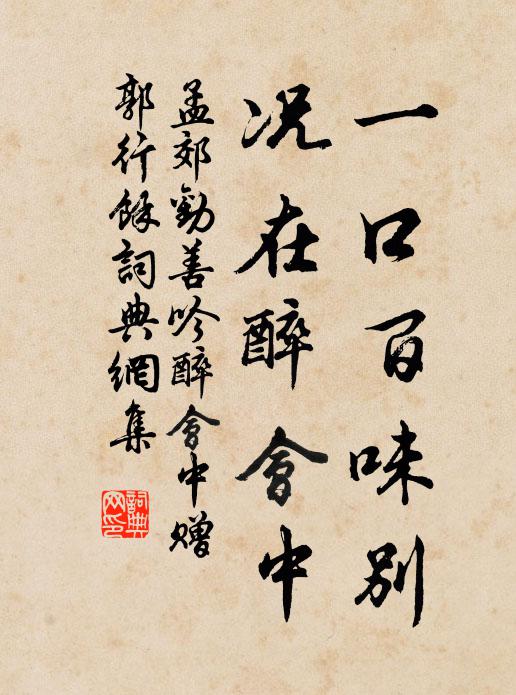 一口百味别
况在醉會中
孟郊勸善吟醉會中贈
郭行餘詞典網集
詞典網印